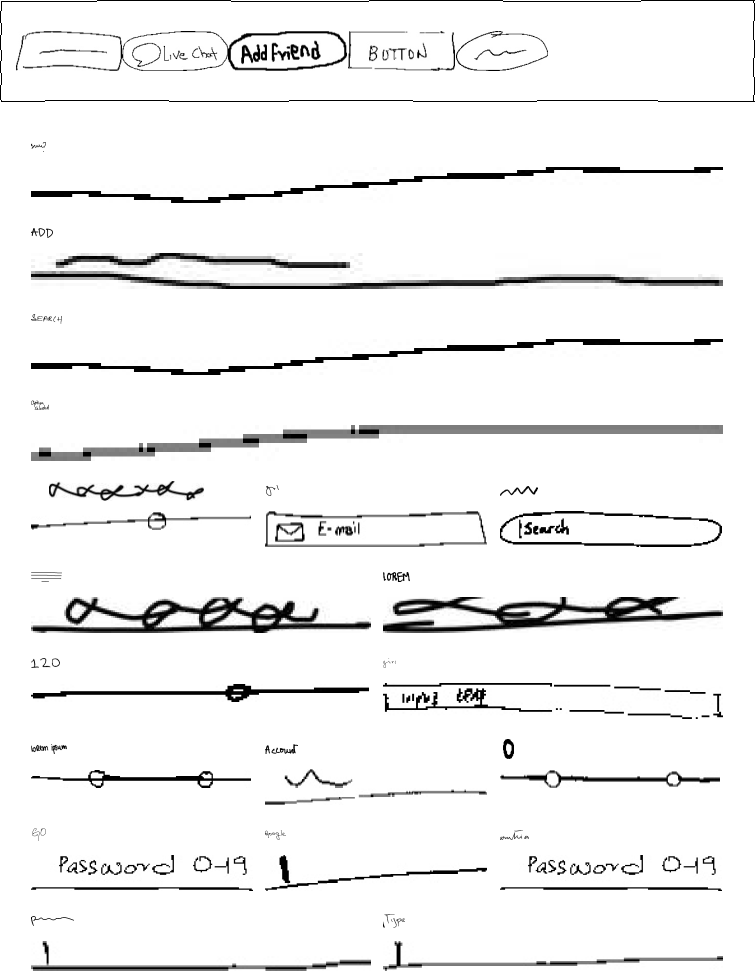 Live Chat Add Friend BUTTON
ADD
SEARCH
E-mail
Search
lOREM
120
input text
lorem ipsum
Account
0
GO
Google
Password 0-19
Password 0-19
Type